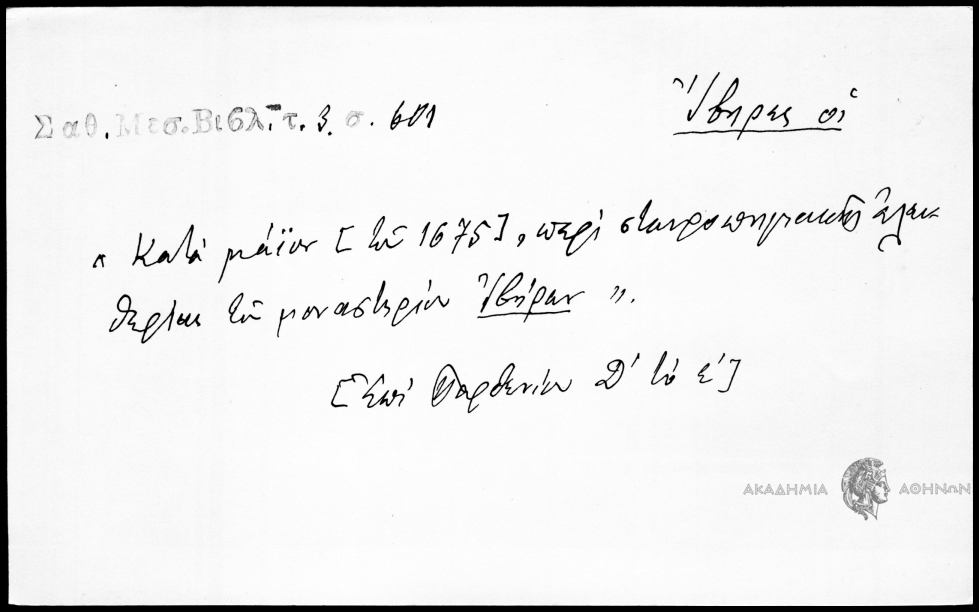 Σαθ. Μεσ. Βιβλ. τ. 3. σ. 601
Ἴβηρες οἱ
« Κατὰ μάϊον [τοῦ 1675], περὶ σταυροπηγιακῆς ἐλευ-
θερίας τοῦ μοναστηρίου Ἰβήρων ».
[Ἐπὶ Παρθενίου Δ' τὸ ε']
ΑΚΑΔΗΜΙΑ ΑΘΗΝΩΝ